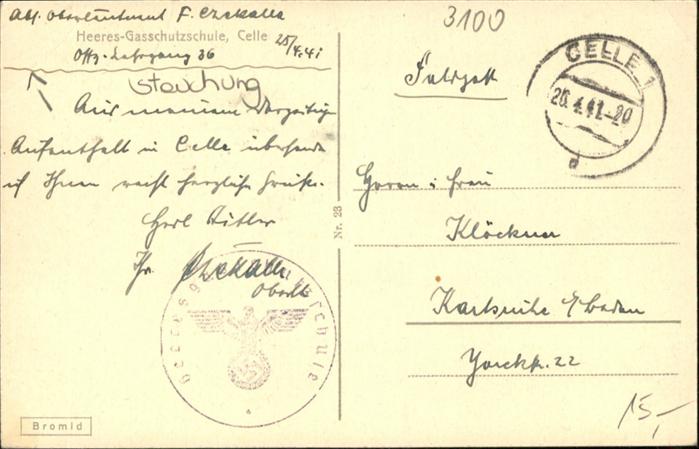 Abs. Oberleutnant F. Czekalla
Heeres-Gasschutzschule, Celle
Offz.-Lehrgang 36
25/4.41
Aus meinem derzeitigen
Aufenthalt in Celle übersende
ich Ihnen recht herzliche Grüße.
Heil Hitler
Ihr Czekalla
Oberlt
Bromid
Nr. 23
3100
Feldpost
CELLE 1
26.4.41.-20
d
Herrn u. Frau
Klöckner
Karlsruhe i/Baden
Yorckstr. 22
15,-